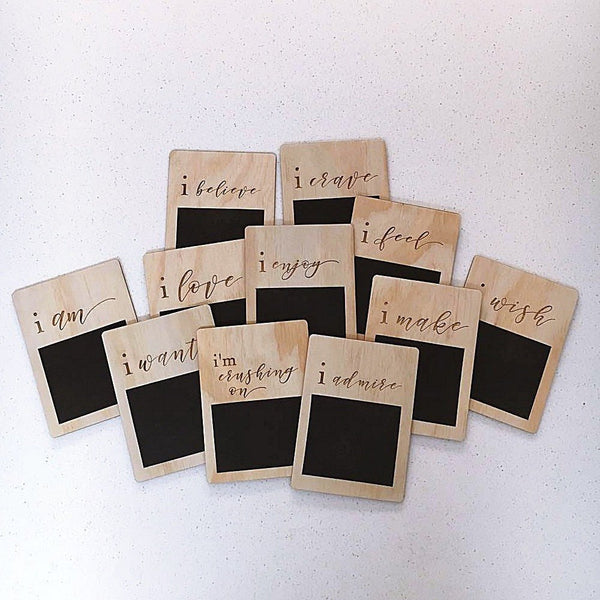 i believe
i crave
i feel
i love
i enjoy
i am
i want
i'm
crushing
on
i admire
i make
i wish